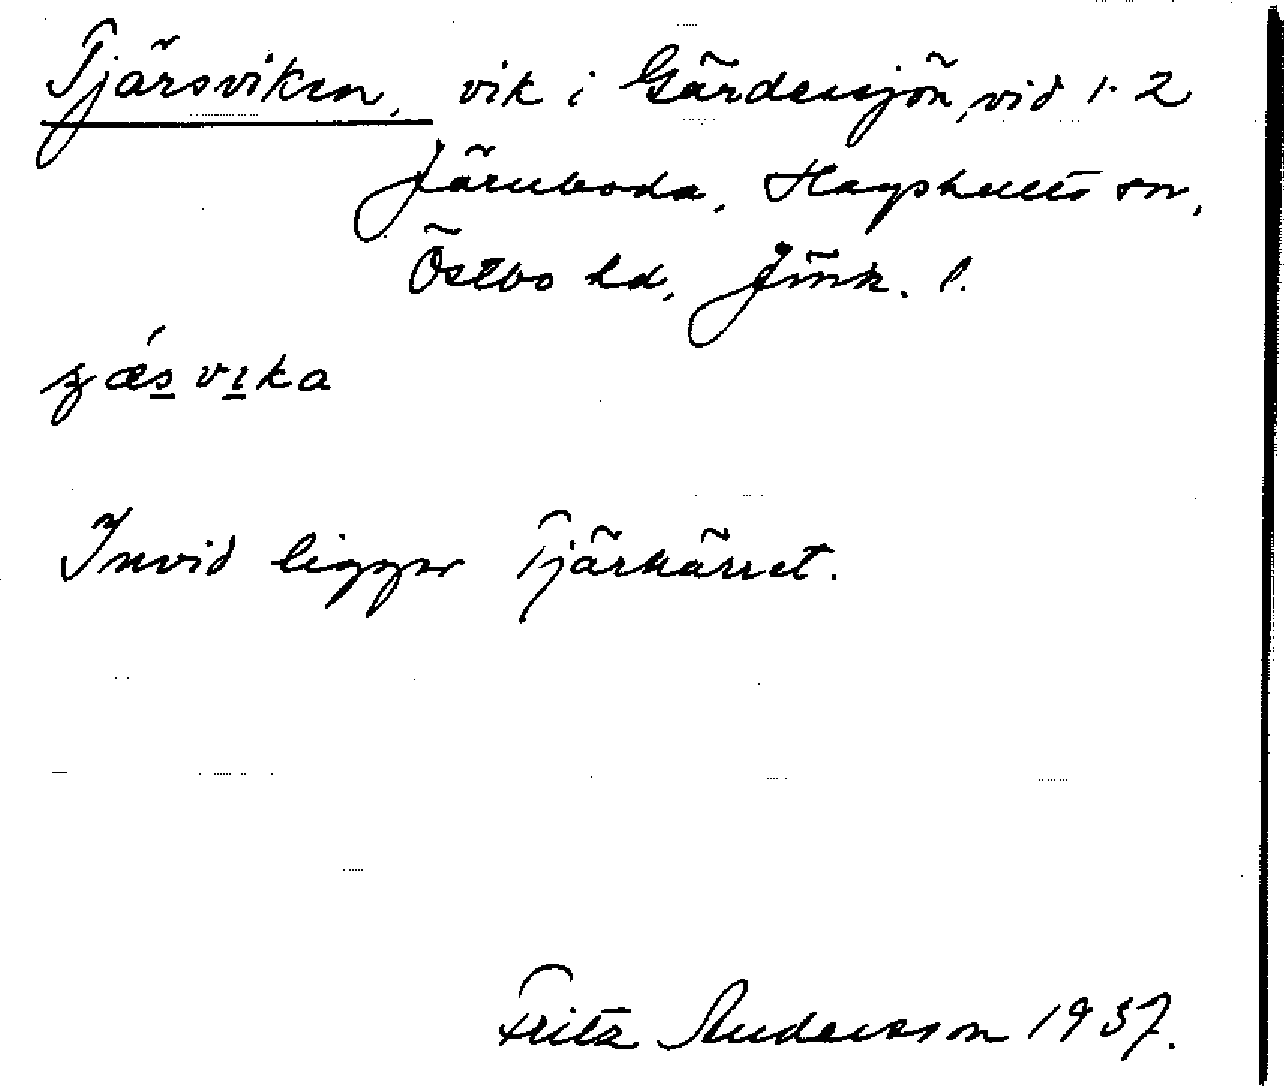 Tjärsviken, vik i Gärdessjön, vid 1.2
Järnboda, Hagshults sn,
Östbo hd, Jönk. l.
Invid ligger Tjärkärret.
Fritz Andersson 1937.